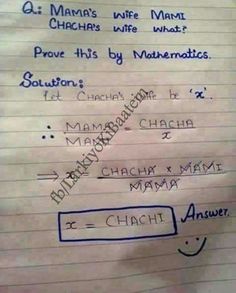 Q: MAMA's wife MAMI
CHACHA's wife what?
Prove this by Mathematics.
Solution:
Let CHACHA's wife be 'x'.
∴ MAMA / MAMI = CHACHA / x
⇒ x = CHACHA × MAMI / MAMA
x = CHACHI Answer.
fb/LarkiyoKiBaatein